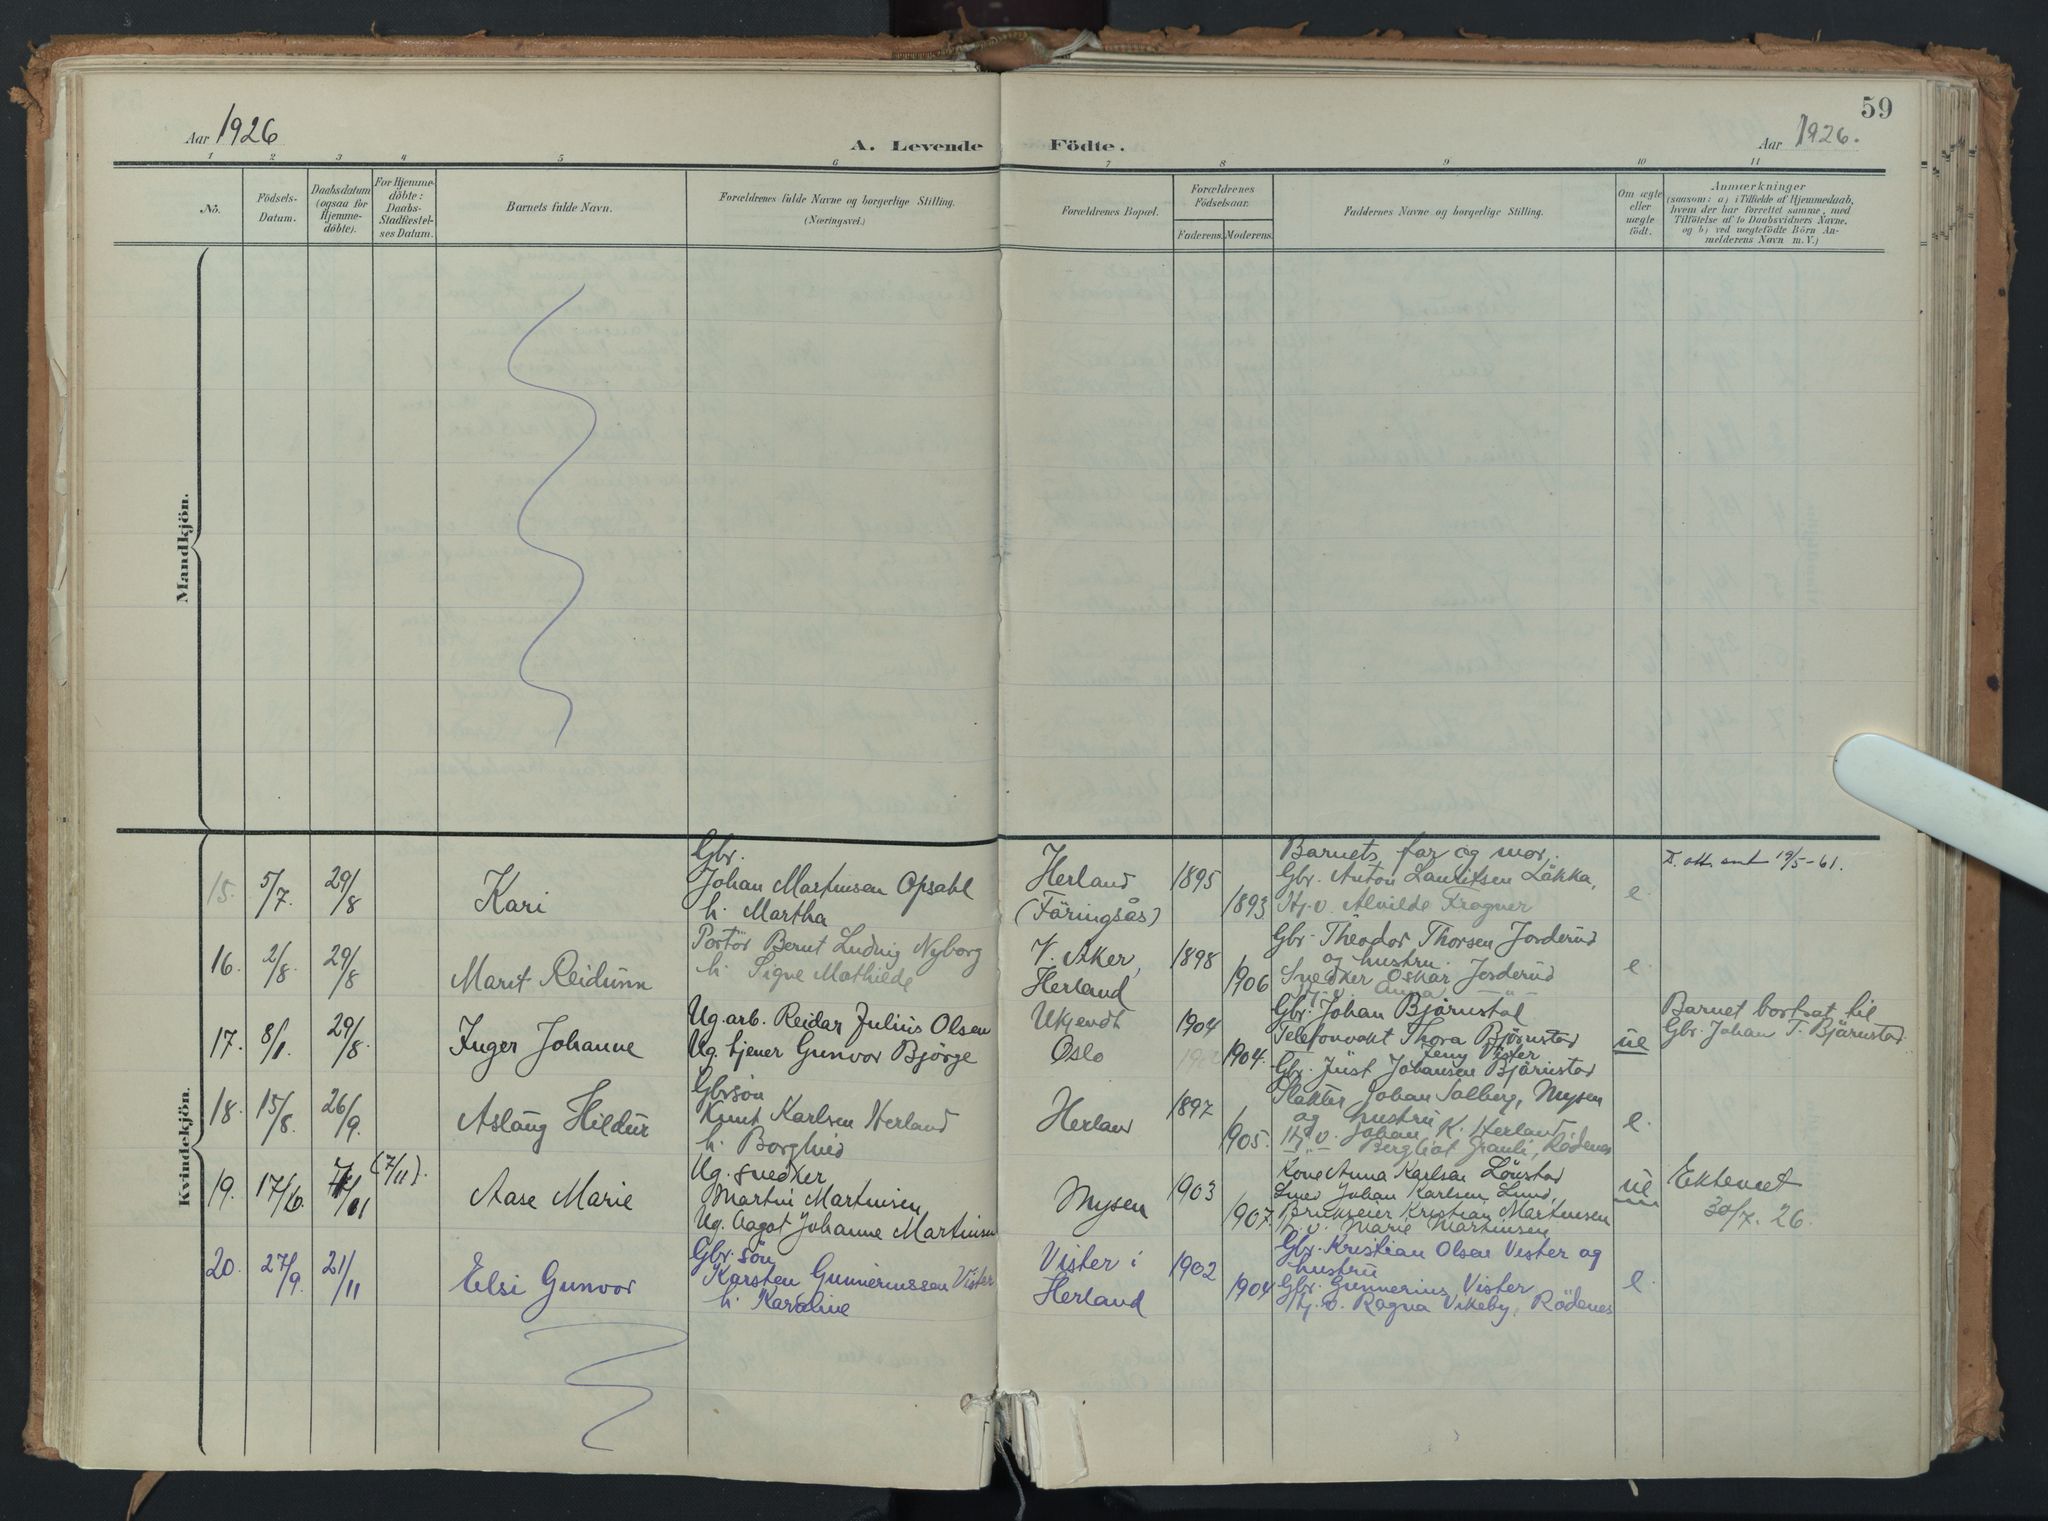 59
Aar 1926
A. Levende Födte.
Aar 1926.
1 2 3 4 5 6 7 8 9 10 11
No.
Födsels-
Datum.
Daabsdatum
(ogsaa for
Hjemme-
döbte).
For Hjemme-
döbte:
Daabs-
Stadfæstel-
ses Datum.
Barnets fulde Navn.
Forældrenes fulde Navne og borgerlige Stilling.
(Næringsvei.)
Forældrenes Bopæl.
Forældrenes
Födselsaar.
Faderens. Moderens.
Faddernes Navne og borgerlige Stilling.
Om ægte
eller
uægte
født.
Anmærkninger
(saasom: a) i Tilfælde af Hjemmedaab,
hvem der har forrettet samme, med
Tilföielse af to Daabsvidners Navne,
og b) ved uægtefödte Börn An-
melderens Navn m. V.)
Mandkjön.
Kvindekjön.
15. 5/7. 29/8
Kari
Gbr.
Johan Martinsen Opsahl
h. Martha
Herland
(Färingsås)
1895
1893
Barnets far og mor.
Gbr. Anton Lauritsen Läkka,
Hj. v. Alvilde Fragner
e.
F. att. sent 19/5-61.
16. 2/8. 29/8
Marit Reidunn
Portör Bernt Ludvig Nyborg
h. Signe Mathilde
V. Aker,
Herland
1898
1906
Gbr. Theodor Thorsen Jorderud
og hustru.
Snedker Oskar Jorderud
Hj. v. Anna -"-
e.
17. 8/1. 29/8.
Inger Johanne
Ug. arb. Reidar Julius Olsen
Ug. tjener Gunvor Björge
Ukjendt
Oslo
1904
1904.
Gbr. Johan Bjørnstad
Telefonvakt Thora Bjørnstad
Jenny Vister
Gbr. Just Johansen Bjørnstad
ue
Barnet bortsat til
Gbr. Johan T. Bjärnstad.
18. 15/8. 26/9.
Aslaug Hildur
Gbrsøn
Knut Karlsen Herland
h. Borghild
Herland
1897
1905.
Slakter Johan Solberg, Mysen
og hustru
Hj. v. Johan K. Herland,
-"- Bergliot Granli, Rødenes
e.
19. 17/10. 7/11 (7/11).
Aase Marie
Ug. snedker
Martin Martinsen
Ug. Aagot Johanne Martinsen
Mysen
1903
1907.
Kone Anna Karlsen Lönstad
Smed Johan Karlsen Lund,
Brukseier Kristian Martinsen
h. v. Marie Martinsen
ue
Ektevиet
30/7. 26.
20. 27/9. 21/11
Elsi Gunvor
Gbr. søn
Karsten Gunneriussen Vister
h. Karoline
Vister i
Herland
1902
1904
Gbr. Kristian Olsen Vister og
hustru
Gbr. Gunnerius Vister
Hj. v. Ragna Vikeby, Rödenes
e.